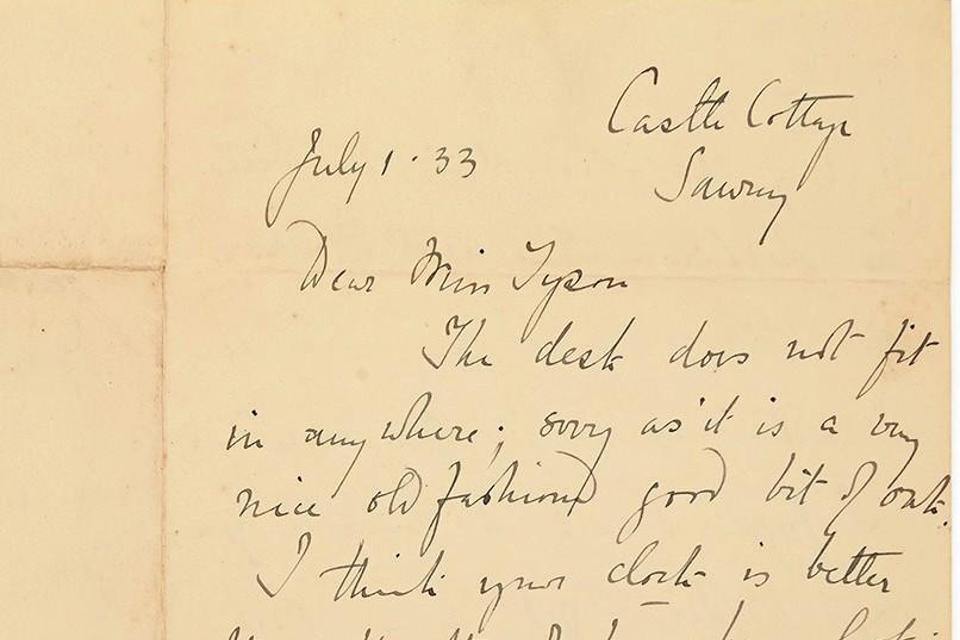 Castle Cottage
Sawrey
July 1. 33
Dear Miss Tyson
The desk does not fit
in anywhere; sorry as it is a very
nice old fashioned good bit of oak.
I think your clock is better